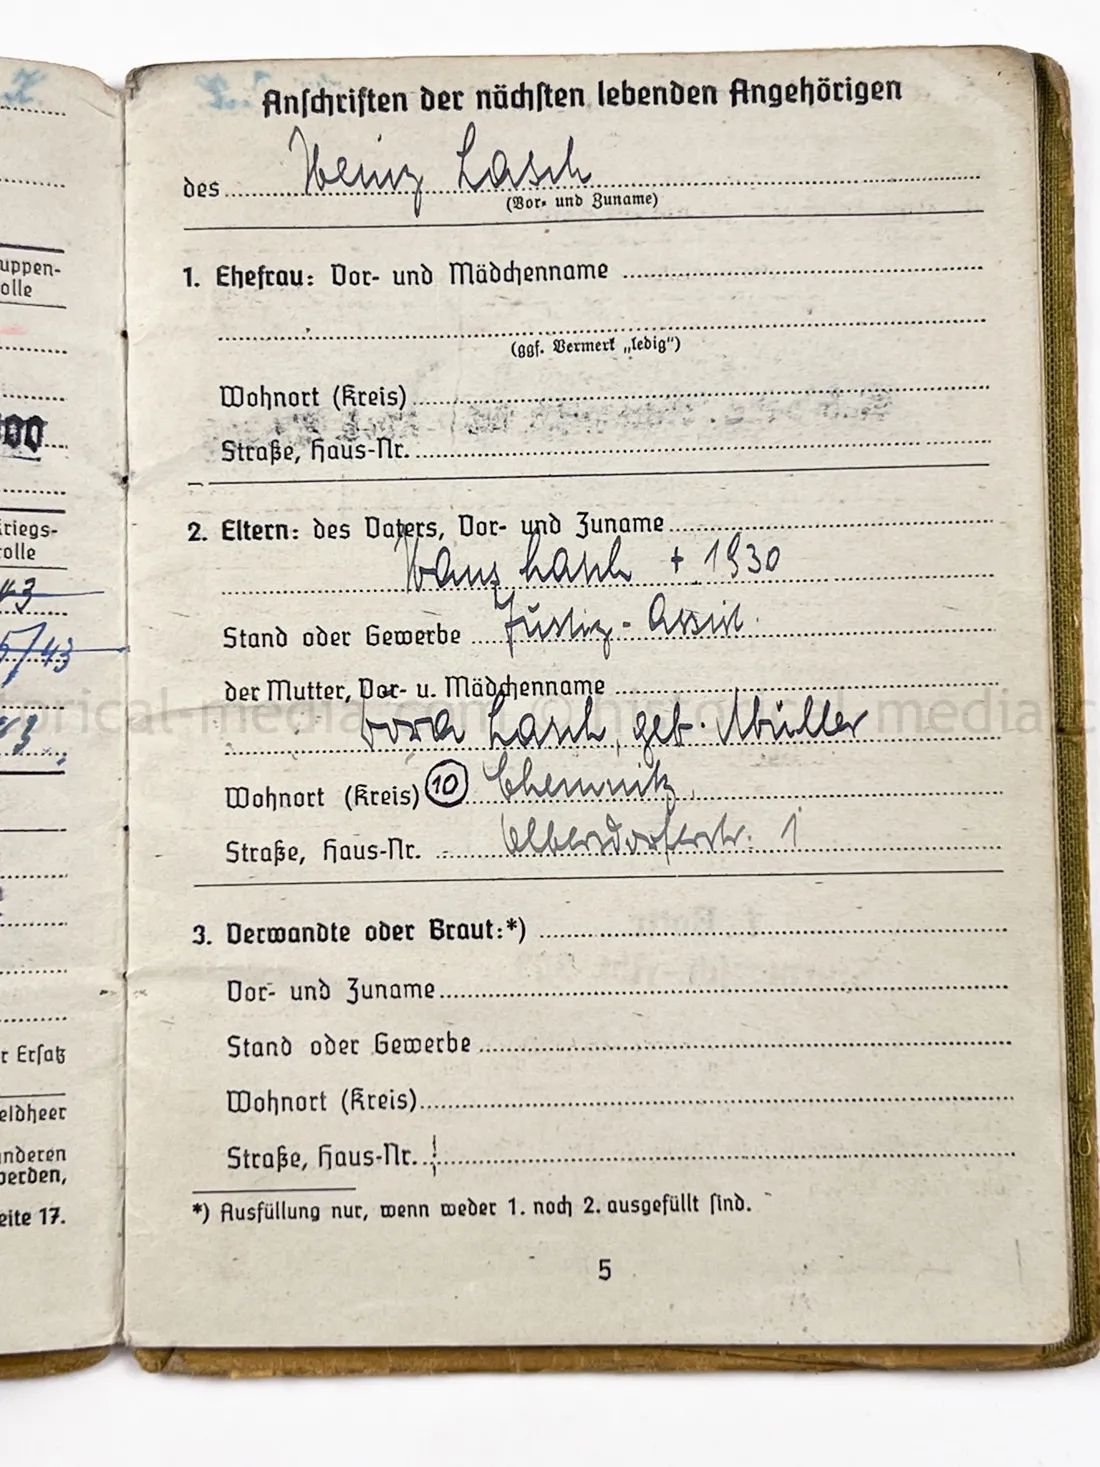 uppen-
olle
00
Kriegs-
rolle
43
5/43
43
r Ersatz
eldheer
nderen
werden,
eite 17.
Anschriften der nächsten lebenden Angehörigen
des Heinz Lasch
(Vor- und Zuname)
1. Ehefrau: Vor- und Mädchenname
(ggf. Vermerk „ledig“)
Wohnort (Kreis)
Straße, Haus-Nr.
2. Eltern: des Vaters, Vor- und Zuname
Hans Lasch + 1930
Stand oder Gewerbe Justiz-Assist.
der Mutter, Vor- u. Mädchenname
Dora Lasch, geb. Müller
Wohnort (Kreis) 10 Chemnitz
Straße, Haus-Nr. Elbersdorferstr. 1
3. Verwandte oder Braut:*)
Vor- und Zuname
Stand oder Gewerbe
Wohnort (Kreis)
Straße, Haus-Nr.
*) Ausfüllung nur, wenn weder 1. noch 2. ausgefüllt sind.
5
orical-media.com ©historical-media.c